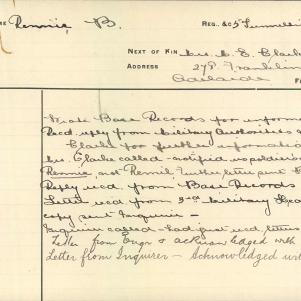 ME Rennie, B. REG. &c 5 Tunnelli
NEXT OF KIN Mrs. M. E. Clarke
ADDRESS 278 Franklin
Adelaide
Wrote Base Records for informa
Recd. reply from Military Authorities
Clarke for further information
Mrs. Clarke called - notified us
Rennie, not Rennil. Further letter sent
Reply recd from Base Records
Letter recd from 3rd Military
copy sent Inquirer -
Inquirer called - had just recd letter
Letter from Engr & acknowledged with
Letter from Inquirer - Acknowledged wi